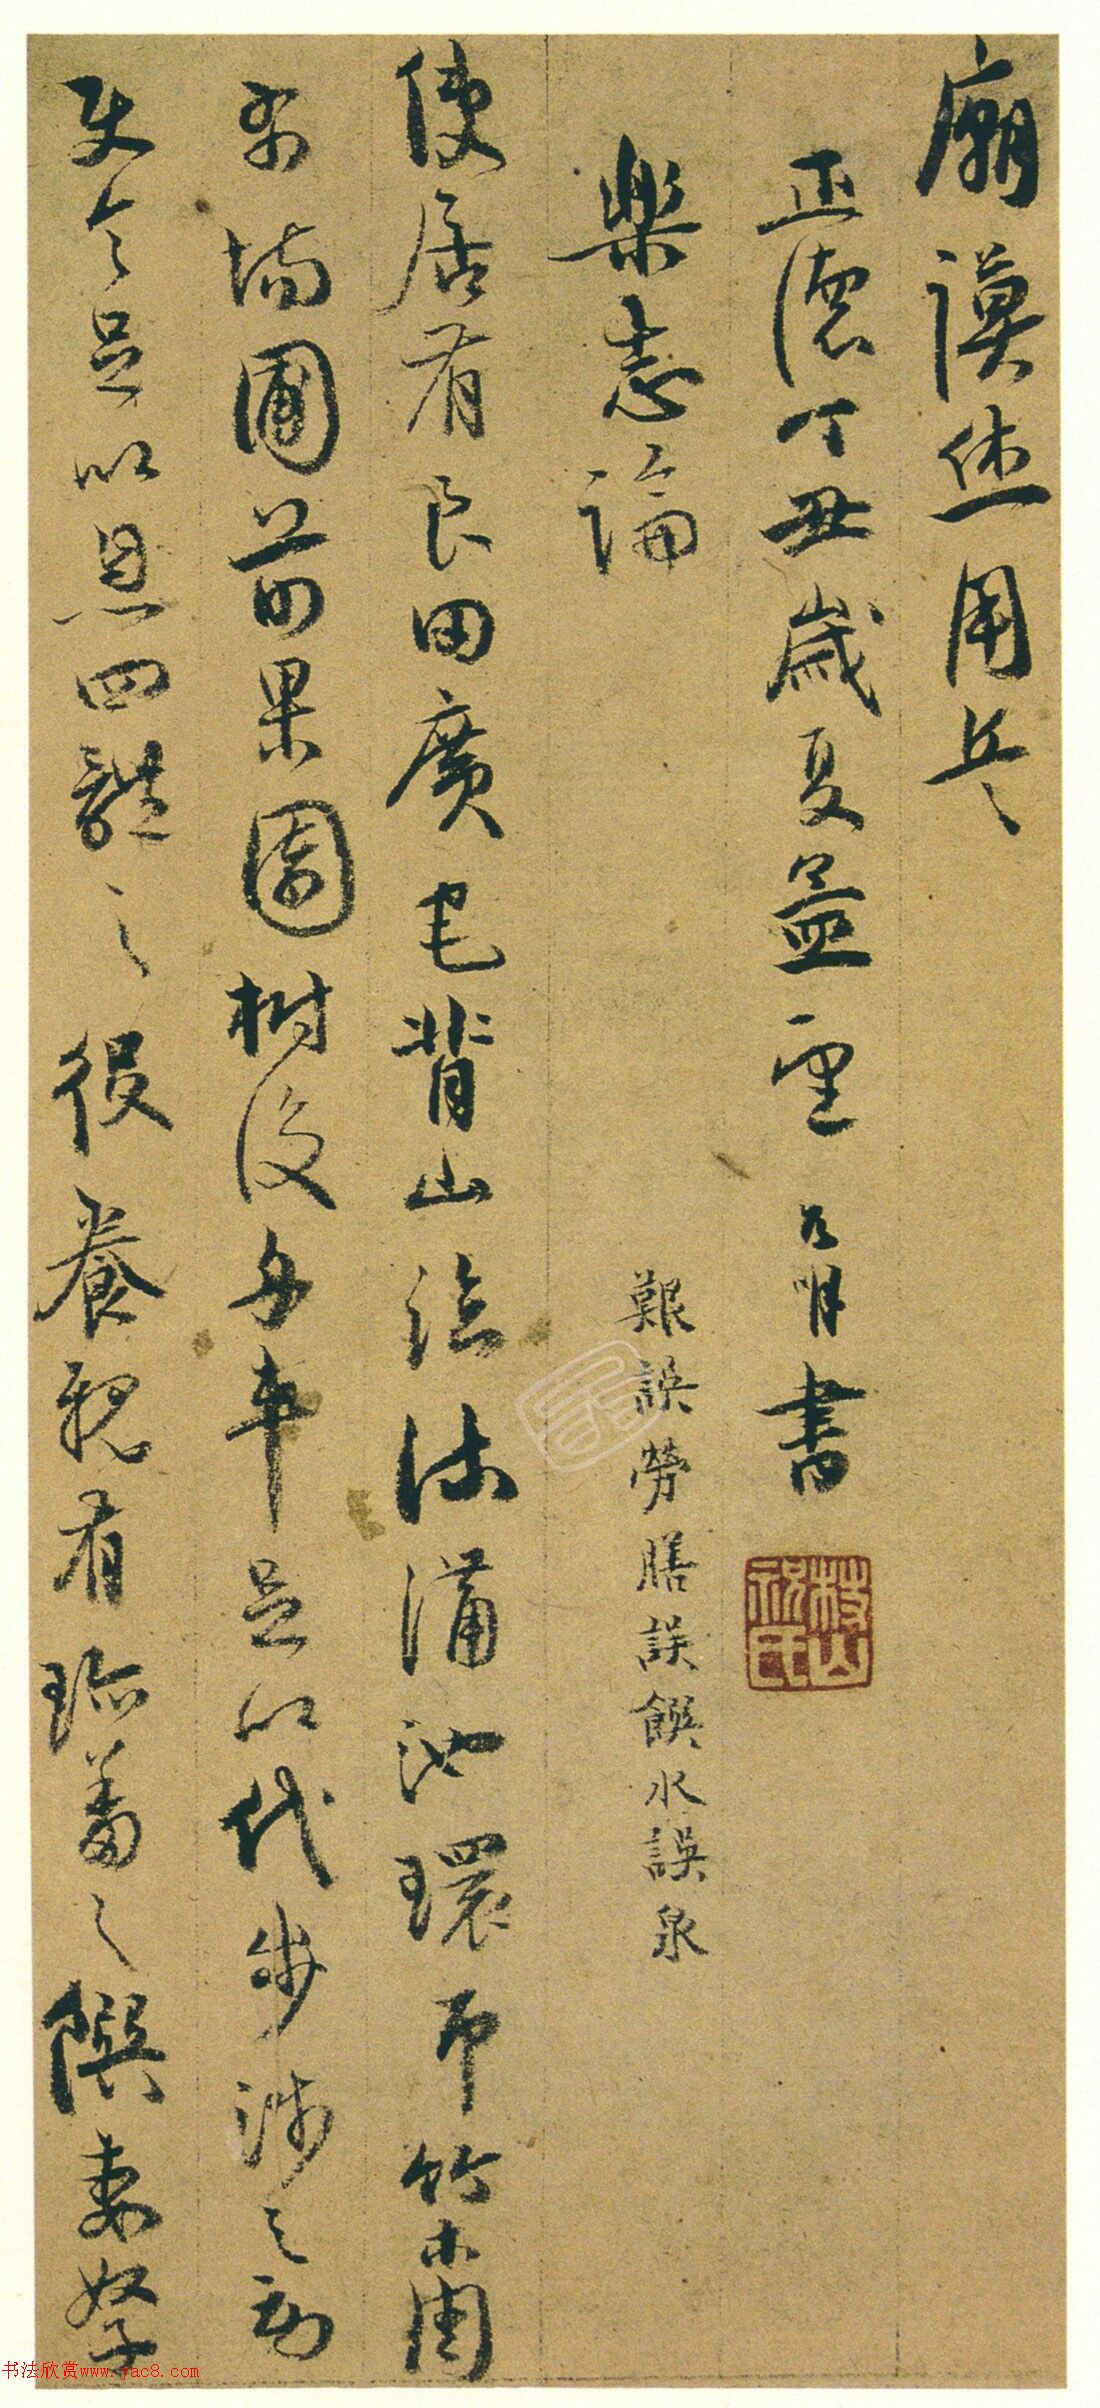 廟謨休用兵
正德丁丑歲夏孟望 允明書
枝山祝氏
樂志論
艱誤勞膳誤饌水誤泉
使居有良田廣宅背山臨流溝池環帀竹木周
布場圃前果園樹後舟車足以代步涉之勞
使令足以息四體之役養親有珍羞之饌妻孥
书法欣赏www.yac8.com